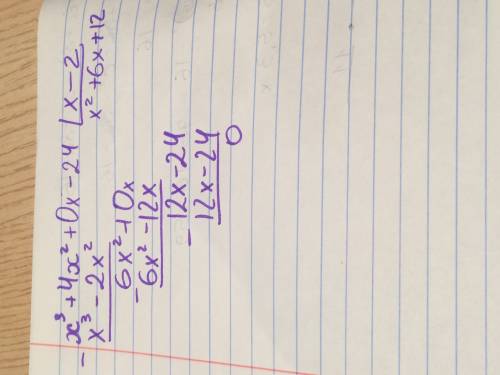 x³ + 4x² + 0x - 24 | x - 2
- x³ - 2x² x² + 6x + 12
6x² + 0x
- 6x² - 12x
12x - 24
- 12x - 24
0